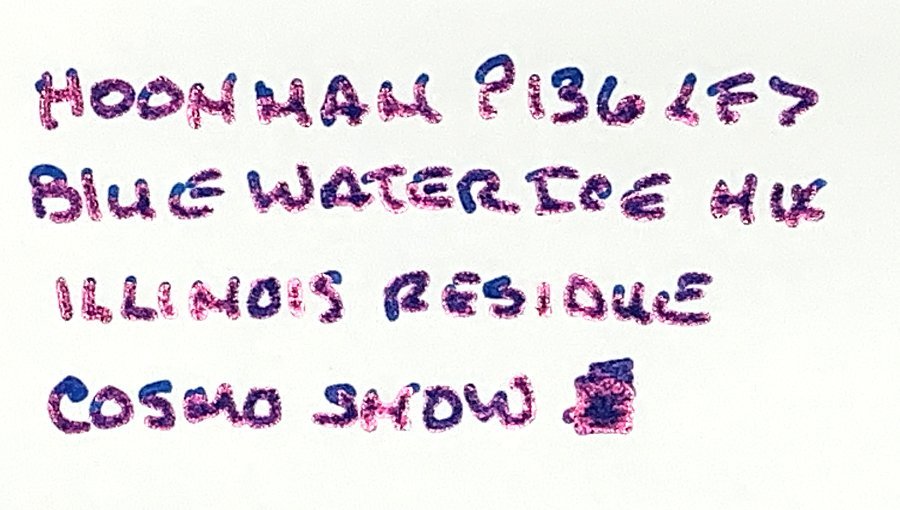 HOONMAN P136 <F>
BLUE WATER ICE HUE
ILLINOIS RESIDUE
COSMO SHOW